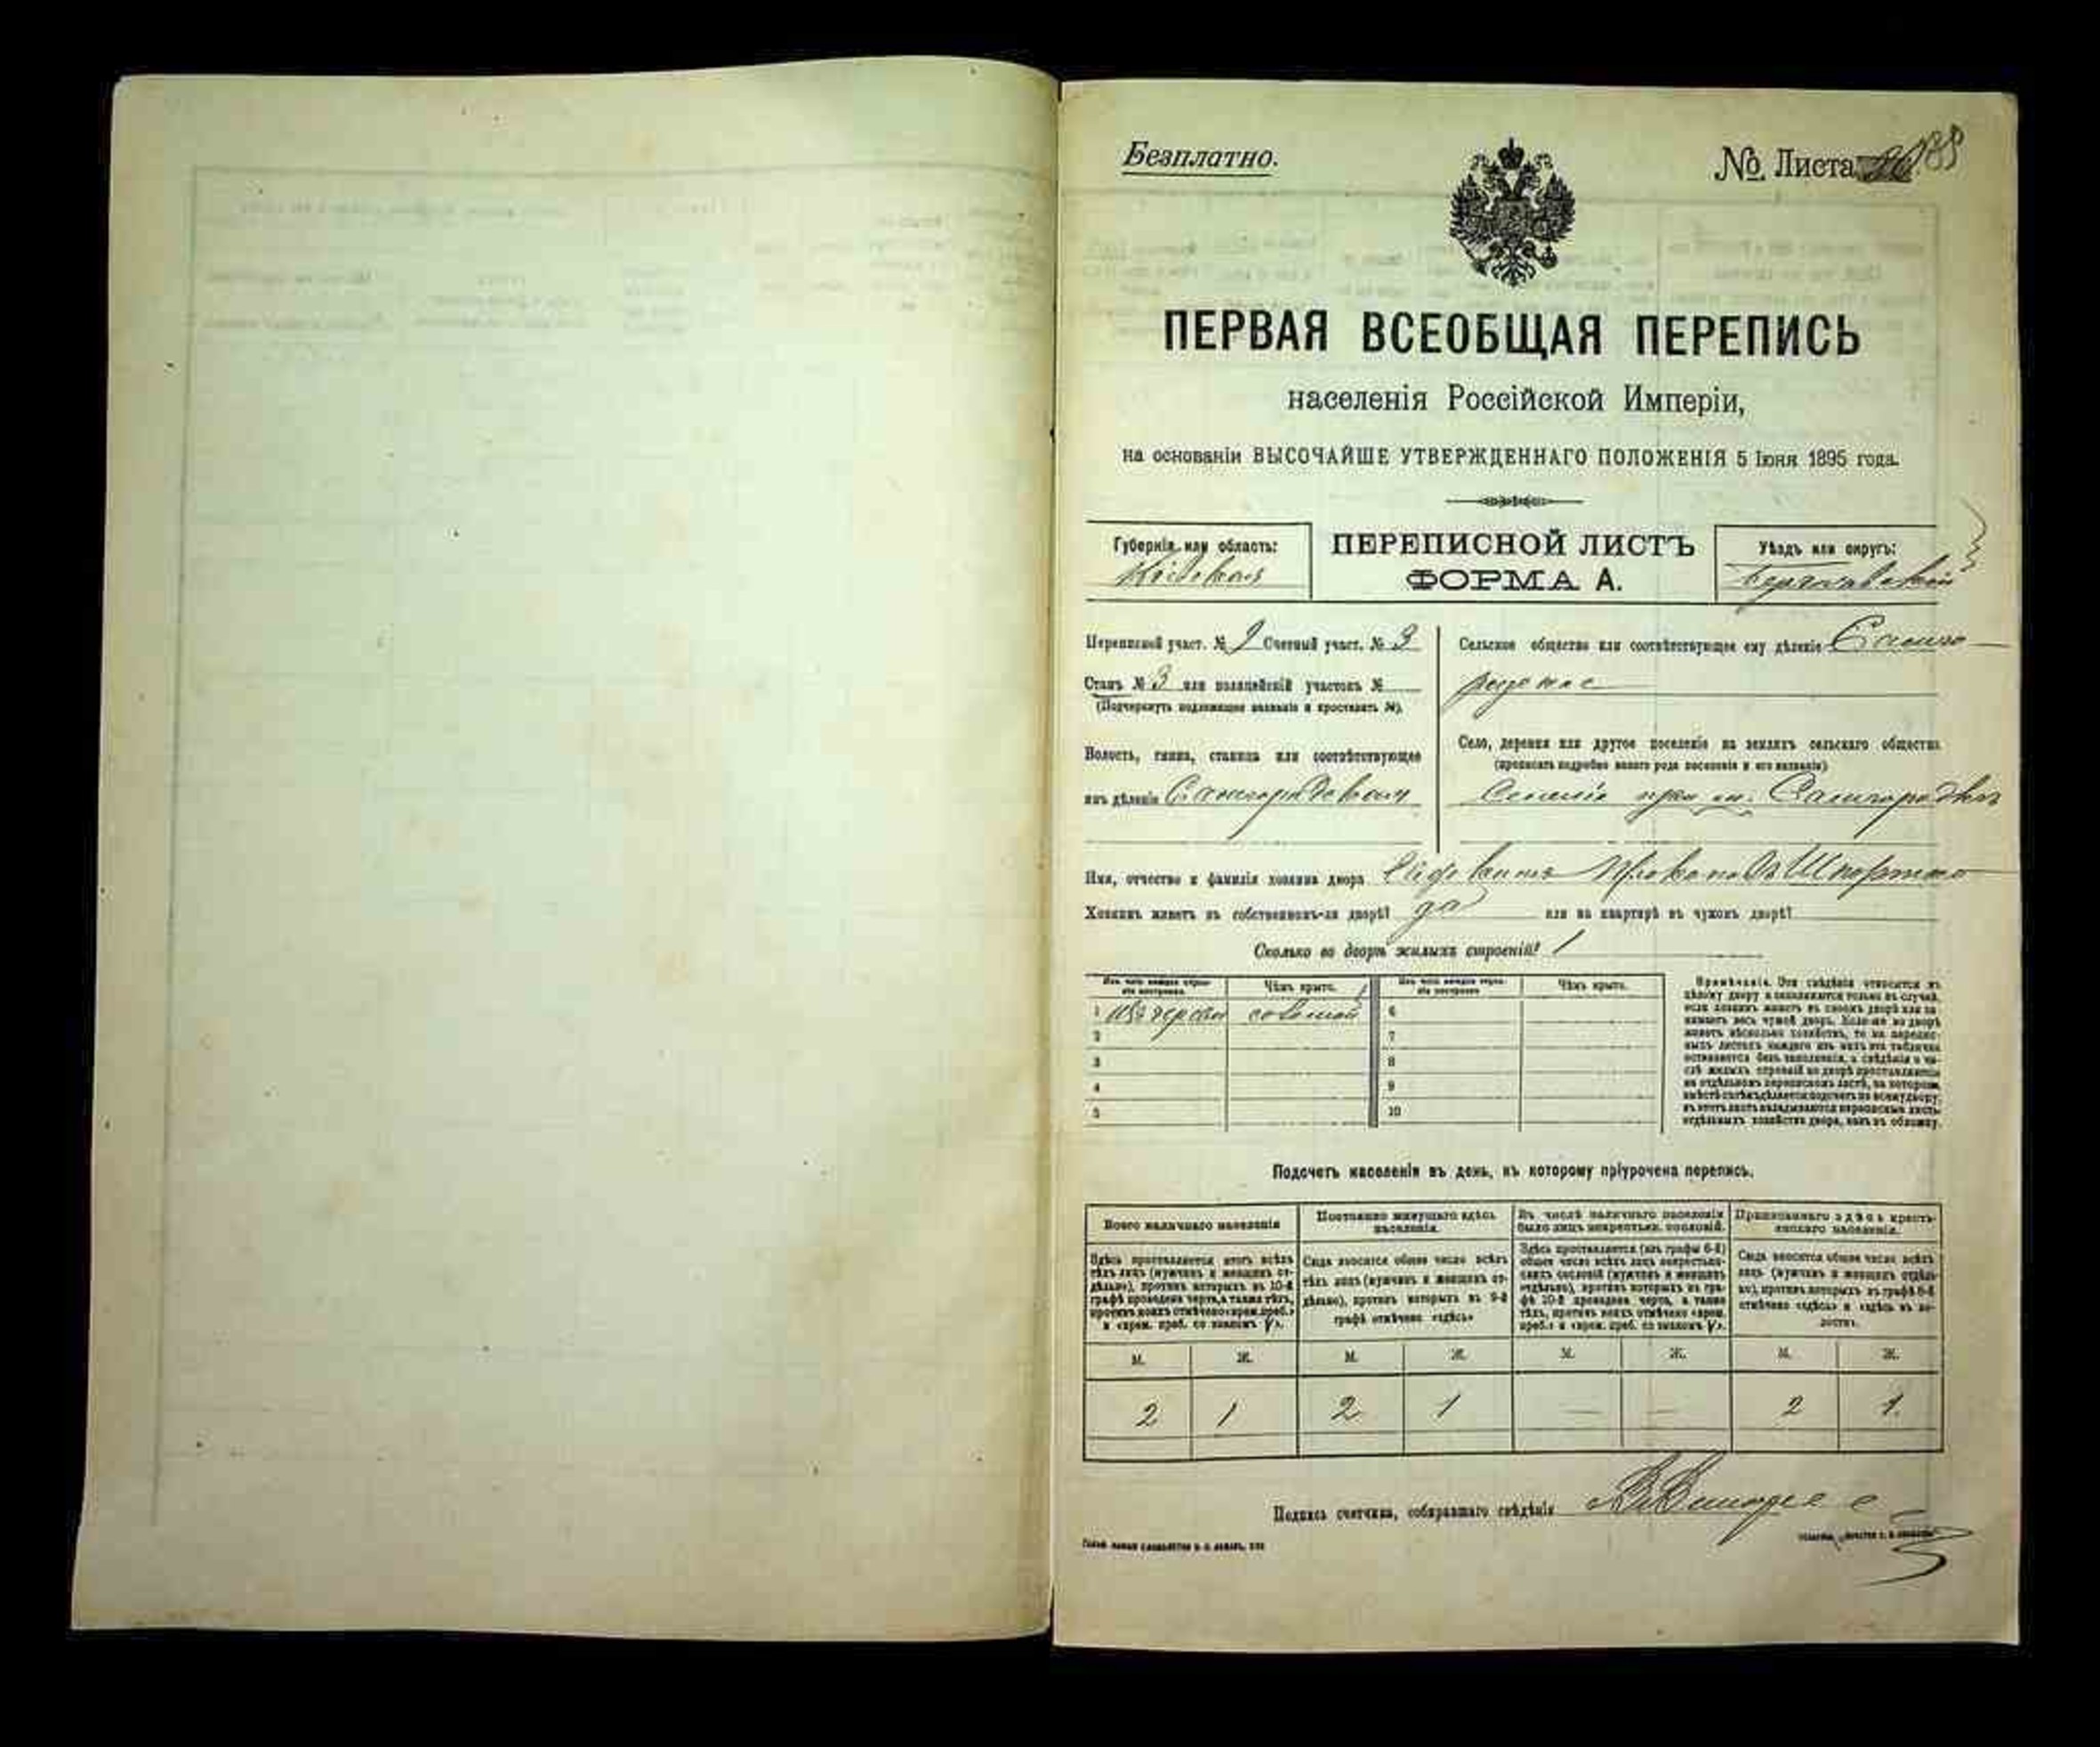 Безплатно.
№ Листа
ПЕРВАЯ ВСЕОБЩАЯ ПЕРЕПИСЬ
населенія Россійской Имперіи,
на основаніи ВЫСОЧАЙШЕ УТВЕРЖДЕННАГО ПОЛОЖЕНІЯ 5 Іюня 1895 года.
Губернія или область:
Кіевская
ПЕРЕПИСНОЙ ЛИСТЪ
ФОРМА А.
Уѣздъ или округъ:
Бердичевскій
Переписной участ. № 2 Счетный участ. № 3
Станъ № 3 или полицейскій участокъ №
(Подчеркнуть подлежащее названіе и проставить №).
Волость, гмина, станица или соотвѣтствующее
имъ дѣленіе Самгородская
Сельское общество или соотвѣтствующее ему дѣленіе Самго-
родское
Село, деревня или другое поселеніе на земляхъ сельскаго общества
(прописать подробно какого рода поселеніе и его названіе)
Селеніе при м. Самгородкѣ
Имя, отчество и фамилія хозяина двора
Хозяинъ живетъ въ собственномъ-ли дворѣ? да или на квартирѣ въ чужомъ дворѣ?
Сколько во дворѣ жилыхъ строеній? 1
Изъ чего каждое строеніе построено. Чѣмъ крыто. Изъ чего каждое строеніе построено Чѣмъ крыто.
1 соломой 6
2 7
3 8
4 9
5 10
Примѣчаніе. Эти свѣдѣнія относятся къ
цѣлому двору и заполняются только въ случаѣ,
если хозяинъ живетъ въ своемъ дворѣ или занимаетъ весь чужой дворъ. Коли же во дворѣ
живетъ нѣсколько хозяйствъ, то на переписныхъ листахъ каждаго изъ нихъ эта табличка
оставляется безъ заполненія, а свѣдѣнія о числѣ жилыхъ строеній во дворѣ проставляются
на отдѣльномъ переписномъ листѣ, на которомъ
вмѣстѣ съ тѣмъ дѣлается подсчетъ по всему двору;
въ этотъ листъ вкладываются переписные листы
отдѣльныхъ хозяйствъ двора, какъ въ обложку.
Подсчетъ населенія въ день, къ которому пріурочена перепись.
Всего наличнаго населенія
Постоянно живущаго здѣсь населенія.
Въ числѣ наличнаго населенія было лицъ некрестьян. сословій.
Приписаннаго здѣсь крестьянскаго населенія.
Здѣсь проставляется итогъ всѣхъ
тѣхъ лицъ (мужчинъ и женщинъ отдѣльно), противъ которыхъ въ 10-й
графѣ проведена черта, а также тѣхъ,
противъ коихъ отмѣчено «врем. преб.»
и «врем. преб. со знакомъ V».
Сюда вносится общее число всѣхъ
тѣхъ лицъ (мужчинъ и женщинъ отдѣльно), противъ которыхъ въ 9-й
графѣ отмѣчено «здѣсь»
Здѣсь проставляется (изъ графы 6-й)
общее число всѣхъ лицъ некрестьянскихъ сословій (мужчинъ и женщинъ
отдѣльно), противъ которыхъ въ графѣ 10-й проведена черта, а также
тѣхъ, противъ коихъ отмѣчено «врем.
преб.» и «врем. преб. со знакомъ V».
Сюда вносится общее число всѣхъ
лицъ (мужчинъ и женщинъ отдѣльно), противъ которыхъ въ графѣ 8-й
отмѣчено «здѣсь» и «здѣсь въ волости».
М. Ж. М. Ж. М. Ж. М. Ж.
2 1 2 1 — — 2 1
Подпись счетчика, собиравшаго свѣдѣнія